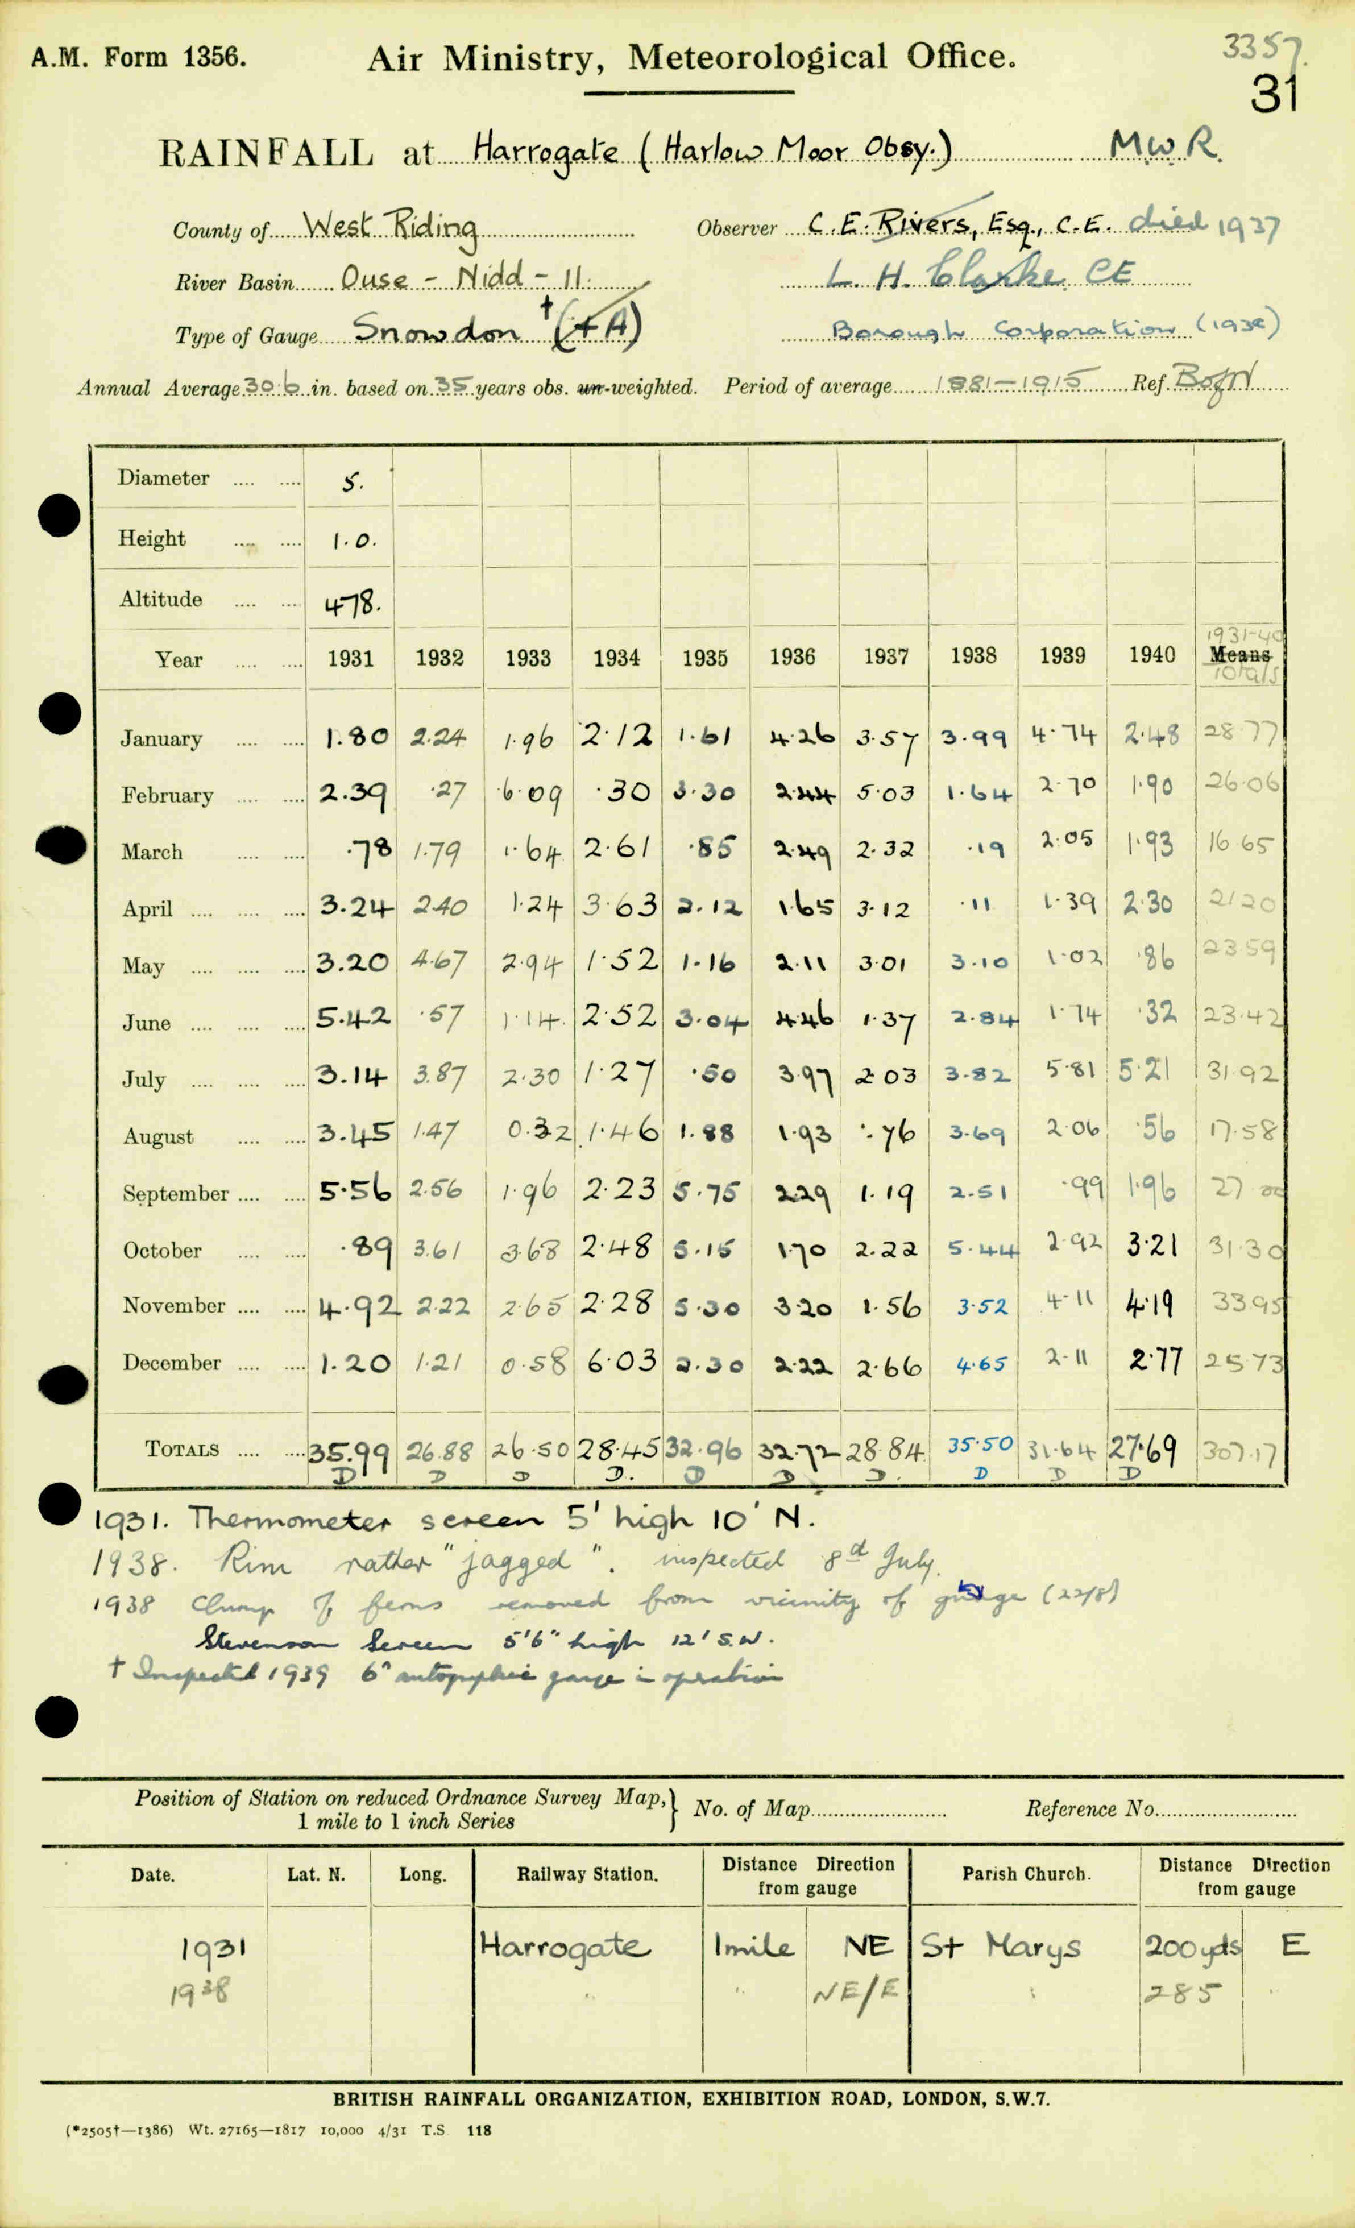 A.M. Form 1356. Air Ministry, Meteorological Office. 3357.
31
RAINFALL at Harrogate (Harlow Moor Obsy.) M.W.R.
County of West Riding Observer C.E. Rivers, Esq., C.E. died 1937
River Basin Ouse - Nidd - 11. L. H. Clarke. CE
Type of Gauge Snowdon † (+A) Borough Corporation
Annual Average 30.6 in. based on 35 years obs. un-weighted. Period of average 1881-1915 Ref.
Diameter .... .... 5.
Height .... .... 1.0.
Altitude .... .... 478.
Year .... .... 1931 1932 1933 1934 1935 1936 1937 1938 1939 1940 1931-40 Means Totals
January .... .... 1.80 2.24 1.96 2.12 1.61 4.26 3.57 3.99 4.74 2.48 28.77
February .... .... 2.39 .27 6.09 .30 3.30 2.44 5.03 1.64 2.70 1.90 26.06
March .... .... .78 1.79 1.64 2.61 .85 2.49 2.32 .19 2.05 1.93 16.65
April .... .... .... 3.24 2.40 1.24 3.63 2.12 1.65 3.12 .11 1.39 2.30 21.20
May .... .... .... 3.20 4.67 2.94 1.52 1.16 2.11 3.01 3.10 1.02 .86 23.59
June .... .... .... 5.42 .57 1.14 2.52 3.04 4.46 1.37 2.84 1.74 .32 23.42
July .... .... .... 3.14 3.87 2.30 1.27 .50 3.97 2.03 3.82 5.81 5.21 31.92
August .... .... 3.45 1.47 0.32 1.46 1.88 1.93 .76 3.69 2.06 .56 17.58
September .... .... 5.56 2.56 1.96 2.23 5.75 2.29 1.19 2.51 .99 1.96 27.00
October .... .... .89 3.61 3.68 2.48 5.15 1.70 2.22 5.44 2.92 3.21 31.30
November .... .... 4.92 2.22 2.65 2.28 5.30 3.20 1.56 3.52 4.11 4.19 33.95
December .... .... 1.20 1.21 0.58 6.03 2.30 2.22 2.66 4.65 2.11 2.77 25.73
TOTALS .... .... 35.99 26.88 26.50 28.45 32.96 32.72 28.84 35.50 31.64 27.69 307.17
D D D D. D D D. D D D
1931. Thermometer screen 5' high 10' N.
1938. Rim rather "jagged". inspected 8th July.
1938 Clump of ferns removed from vicinity of gauge (22/8)
Stevenson Screen 5'6" high 12' S.W.
† Inspected 1939 6" autographic gauge in operation
Position of Station on reduced Ordnance Survey Map,} No. of Map Reference No.
1 mile to 1 inch Series
Date. Lat. N. Long. Railway Station. Distance Direction from gauge Parish Church. Distance Direction from gauge
1931 Harrogate 1 mile NE St Marys 200 yds E
1938 " " NE/E " 285 "
BRITISH RAINFALL ORGANIZATION, EXHIBITION ROAD, LONDON, S.W.7.
(*2505†—1386) Wt. 27165—1817 10,000 4/31 T.S. 118